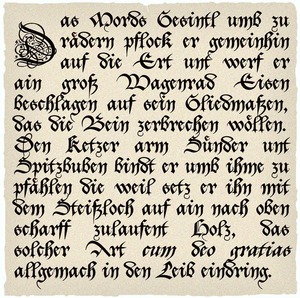 Das Mords Gesintl umb zu
rädern pflock er gemeinhin
auf die Ert unt werf er
ain groß Wagenrad Eisen
beschlagen auf sein Gliedmaßen,
das die Bein zerbrechen wöllen.
Den Ketzer arm Sünder unt
Spitzbuben bindt er umb ihme zu
pfählen die weil setz er ihn mit
dem Steißloch auf ain nach oben
scharff zulaufent Holz, das
solcher Art cum deo gratias
allgemach in den Leib eindring.